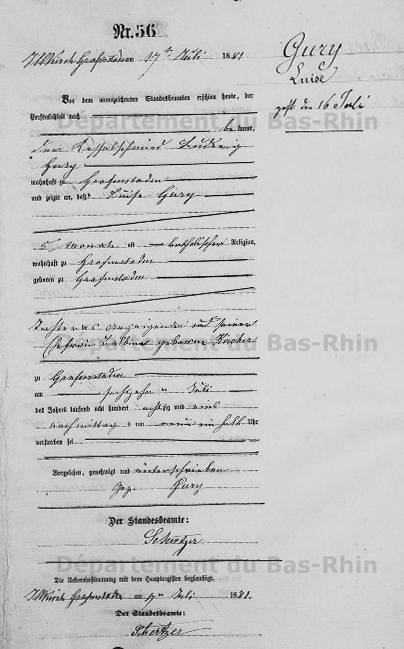 Nr. 56
Illkirch-Grafenstaden am 17ten Juli 1881
Gury
Luise
gest. den 16 Juli
Vor dem unterzeichneten Standesbeamten erschien heute, der
Persönlichkeit nach
bekannt,
der Kesselschmied Ludwig
Gury
wohnhaft zu Grafenstaden
und zeigte an, daß Luise Gury
5 Monate alt katholischer Religion,
wohnhaft zu Grafenstaden
geboren zu Grafenstaden
Tochter des Anzeigenden und seiner
Ehefrau geborenen
zu Grafenstaden
am sechzehn ten Juli
des Jahres tausend acht hundert achtzig und eins
nachmittags um neun ein halb Uhr
verstorben sei
Vorgelesen, genehmigt und unterschrieben
Gez. Gury
Der Standesbeamte:
Schertzer
Die Uebereinstimmung mit dem Hauptregister beglaubigt.
Illkirch Grafenstaden am 17ten Juli 1881.
Der Standesbeamte:
Schertzer
Département du Bas-Rhin
Département du Bas-Rhin
Département du Bas-Rhin